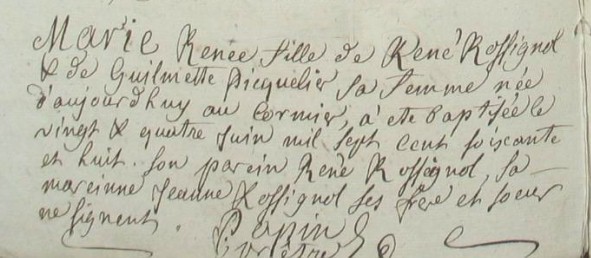 Marie Renée fille de René Rossignol
& de Guilmette Picquelier sa femme née
d'aujourd'huy au Cormier, a été baptisée le
vingt & quatre juin mil sept cent soiscante
et huit. son parein René Rossignol, sa
mareinne Jeanne Rossignol ses frère et soeur
ne signent.
Papin
prêtre